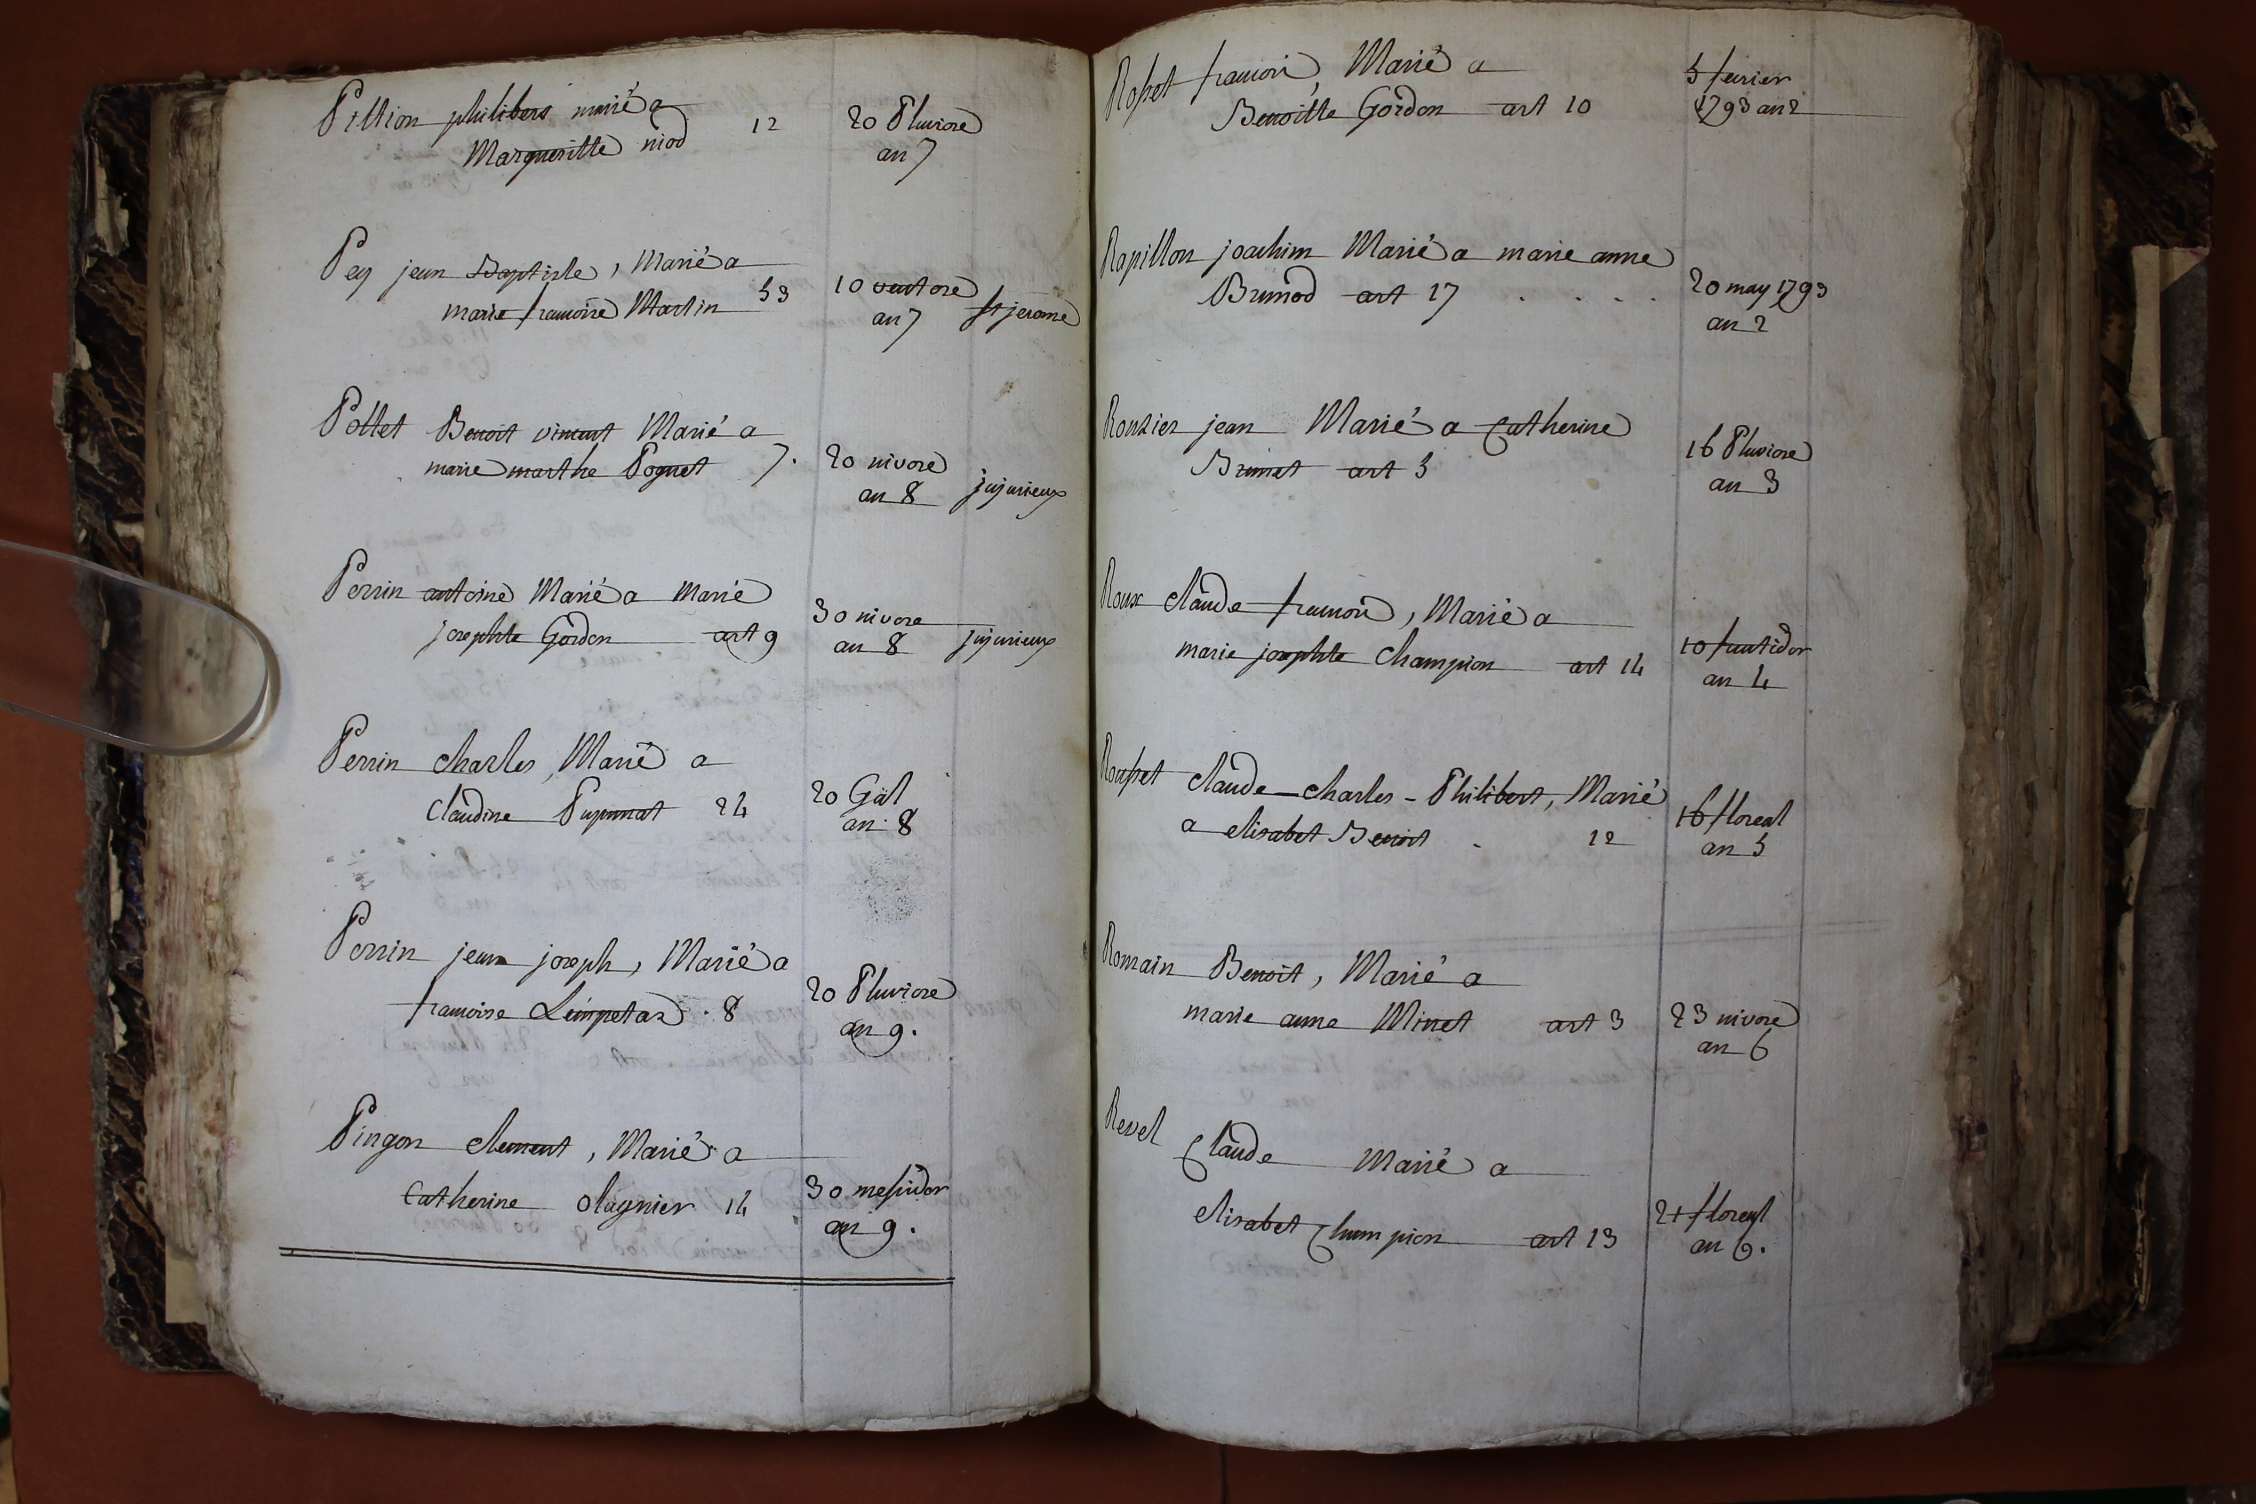 Pittion philibert marié a
Margueritte niod 12 20 Pluviose
an 7
Pey jean Baptiste, Marié a
marie francoise Martin 53 10 ventose
an 7 St jerome
Pollet Benoit vincent Marié a
marie marthe Pognet 7. 20 nivose
an 8 jujurieux
Perrin antoine Marié a Marie
josephte Gordon art 9 30 nivose
an 8 jujurieux
Perrin charles, Marié a
Claudine Pupunat 24 20 Gal
an 8
Perrin jean joseph, Marié a
francoise Leimpetaz . 8 20 Pluviose
an 9.
Pingon clement, Marié a
Catherine olagnier 14 30 messidor
an 9.
Rosset francois, Marié a
Benoitte Gordon art 10 5 fevrier
1793 an 2
Rapillon joachim Marié a marie anne
Brunod art 17 . . . . 20 may 1793
an 2
Rouzier jean Marié a Catherine
Brunet art 5 16 Pluviose
an 3
Roux claude francois, Marié a
marie josephte Champion art 14 10 fructidor
an 4
Rousset claude charles - Philibert, Marié
a elisabet Benoit . 12 16 floreal
an 5
Romain Benoit, Marié a
marie anne Minet art 3 23 nivose
an 6
Revel Claude Marié a
elisabet Champion art 13 21 floreal
an 9.